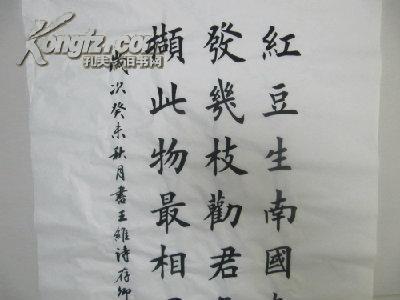 紅豆生南國
發幾枝勸君
擷此物最相
歲次癸未秋月書王維詩存
Kongfz.com
孔夫子旧书网